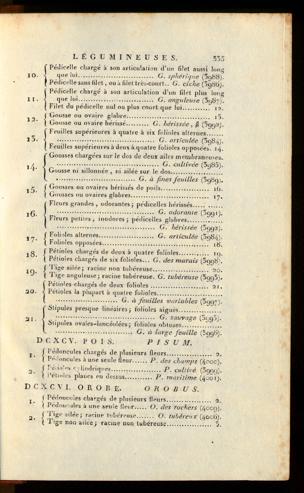 LÉGUMINEUSES. 333
Pédicelle chargé à son articulation d'un filet aussi long
10. que lui............ G. sphérique (3988).
Pédicelle sans filet, ou à filet très-court... G. ciche (3986).
Pédicelle chargé à son articulation d'un filet plus long
11. que lui............ G. anguleuse (3987).
Filet du pédicelle nul ou plus court que lui............ 12.
12. Gousse ou ovaire glabre............ 13.
Gousse ou ovaire hérissé........ G. hérissée, β (3992).
Feuilles supérieures à quatre à six folioles alternes......
13. ............ G. articulée (3984).
Feuilles supérieures à deux à quatre folioles opposées. 14.
Gousses chargées sur le dos de deux ailes membraneuses.
14. ............ G. cultivée (3985).
Gousse ni sillonnée, ni ailée sur le dos............
............ G. à fines feuilles (3989).
15. Gousses ou ovaires hérissés de poils............ 16.
Gousses ou ovaires glabres............ 17.
Fleurs grandes, odorantes; pédicelles hérissés......
16. ............ G. odorante (3991).
Fleurs petites, inodores; pédicelles glabres............
............ G. hérissée (3992).
17. Folioles alternes............ G. articulée (3984).
Folioles opposées............ 18.
18. Pétioles chargés de deux à quatre folioles............ 19.
Pétioles chargés de six folioles... G. des marais (3998).
19. Tige ailée; racine non tubéreuse............ 20.
Tige anguleuse; racine tubéreuse. G. tubéreuse (3993).
Pétioles chargés de deux folioles............ 21.
20. Pétioles la plupart à quatre folioles............
............ G. à feuilles variables (3997).
Stipules presque linéaires; folioles aiguës............
21. ............ G. sauvage (3995).
Stipules ovales-lancéolées; folioles obtuses............
............ G. à large feuille (3996).
DCXCV. POIS. PISUM.
1. Pédoncules chargés de plusieurs fleurs............ 2.
Pédoncules à une seule fleur..... P. des champs (4000).
2. Pétioles cylindriques............ P. cultivé (3999).
Pétioles planes en dessus........ P. maritime (4001).
DCXCVI. OROBE. OROBUS.
1. Pédoncules chargés de plusieurs fleurs............ 2.
Pédoncules à une seule fleur..... O. des rochers (4009).
2. Tige ailée; racine tubéreuse...... O. tubéreux (4006).
Tige non ailée; racine non tubéreuse............ 3.